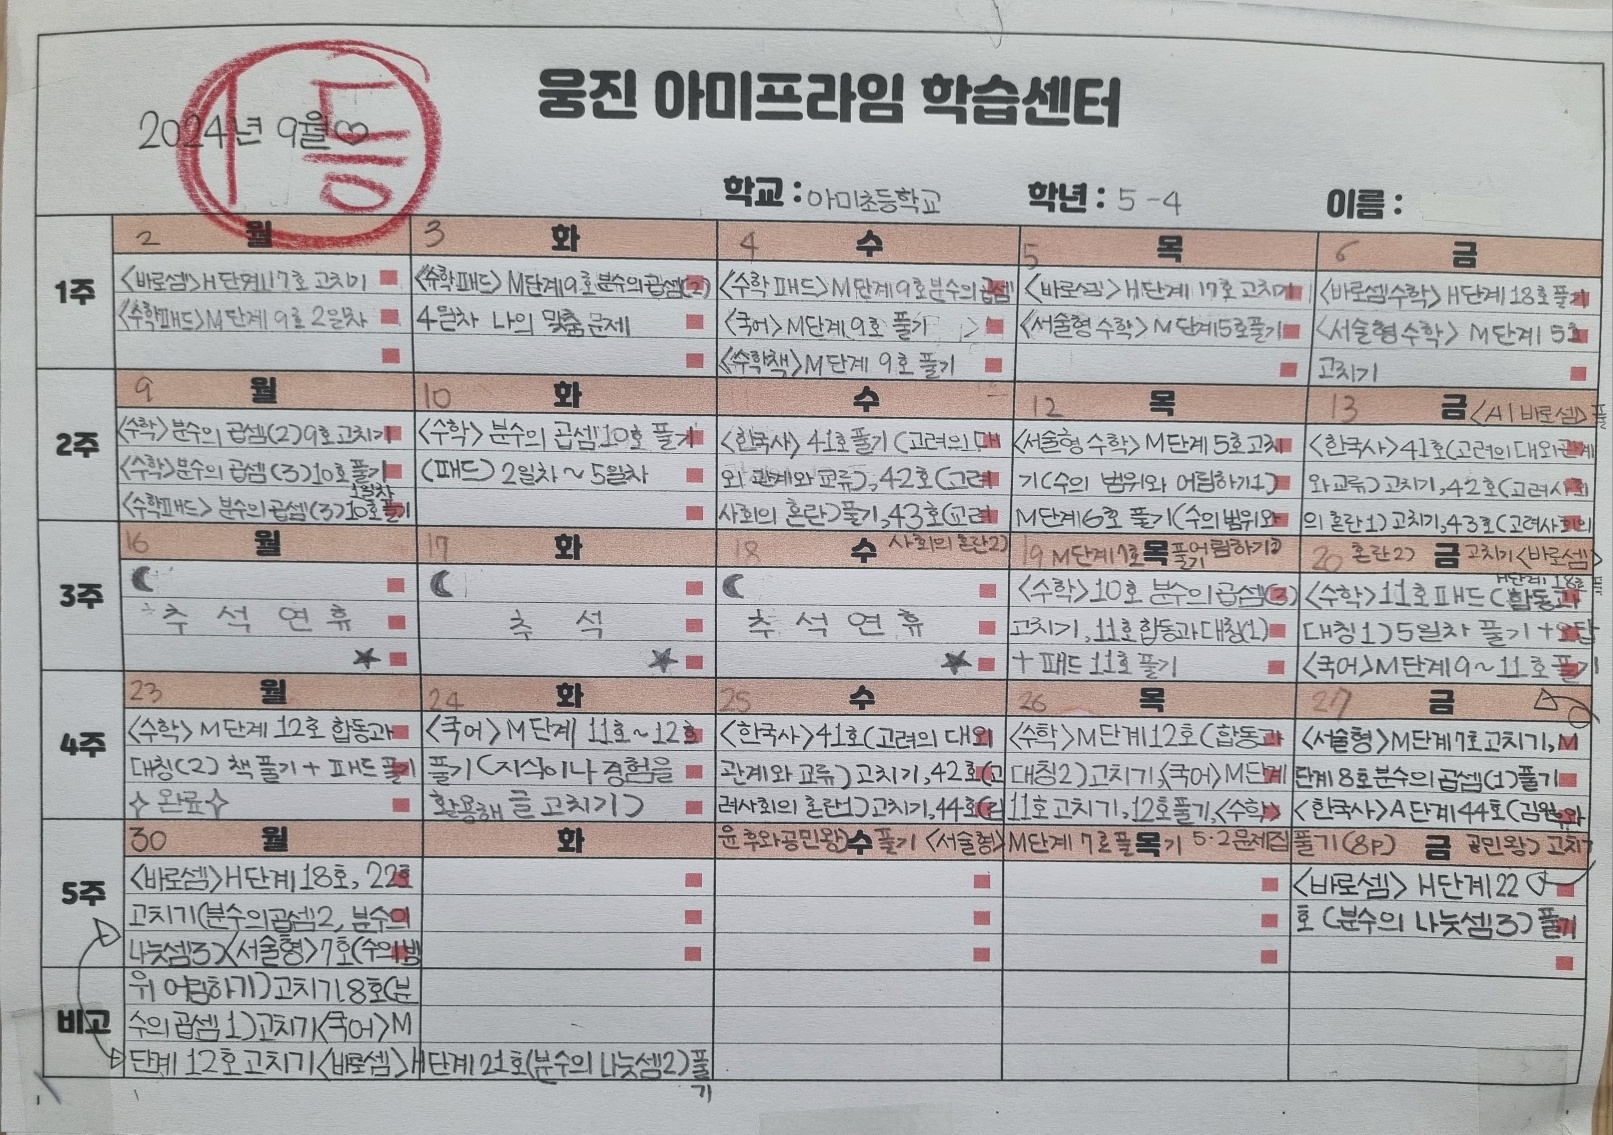 웅진 아미프라임 학습센터
2024년 9월♡
1등
학교 : 아미초등학교 학년 : 5-4 이름 :
2 월 3 화 4 수 5 목 6 금
1주
<바로셈>H단계17호 고치기
<수학패드>M단계 9호 2일차
<수학패드> M단계9호 분수의곱셈(2)
4일차 나의 맞춤 문제
<수학패드>M단계9호분수의곱셈
<국어>M단계9호 풀기
<수학책>M단계 9호 풀기
<바로셈> H단계 17호 고치기
<서술형 수학> M단계5호풀기
<바로셈수학> H단계 18호풀기
<서술형 수학> M단계 5호
고치기
9 월 10 화 수 12 목 13 금 <AI바로셈>풀
2주
<수학>분수의 곱셈(2)9호고치기
<수학>분수의 곱셈(3)10호풀기
1일차
<수학패드> 분수의곱셈(3)10호풀기
<수학> 분수의 곱셈10호 풀기
(패드) 2일차~5일차
<한국사> 41호풀기(고려의 대
외 관계와 교류),42호(고려
사회의 혼란)풀기,43호(고려
사회의혼란2)
<서술형 수학> M단계 5호고치
기(수의 범위와 어림하기1)
M단계6호 풀기(수의범위와
어림하기2)
<한국사>41호(고려의대외관계
와교류)고치기,42호(고려사회
의 혼란1) 고치기,43호(고려사회의
혼란2) 고치기<바로셈>
H단계 18호
16 월 17 화 18 수 19 M단계7호 목 풀기 20 금
3주
추 석 연 휴
추 석
추 석 연 휴
<수학>10호 분수의곱셈(3)
고치기,11호합동과대칭(1)
+패드 11호 풀기
<수학>11호패드(합동과
대칭1)5일차 풀기+오답
<국어>M단계9~11호풀기
23 월 24 화 25 수 26 목 27 금
4주
<수학> M단계 12호 합동과
대칭(2) 책 풀기+ 패드풀기
완료
<국어> M단계 11호~12호
풀기(지식이나 경험을
활용해 글 고치기)
<한국사>41호(고려의 대외
관계와 교류)고치기,42호(고
려사회의 혼란1)고치기,44호(김
윤후와공민왕)풀기 <서술형>M단계 7호풀기 5-2문제집풀기(8p)
<수학>M단계12호(합동과
대칭2)고치기,<국어>M단계
11호고치기,12호풀기,<수학>
<서술형>M단계7호고치기,M
단계8호분수의곱셈(1)풀기
<한국사>A단계44호(김윤후와
공민왕)고치기
30 월 화 수 목 금
5주
<바로셈>H단계18호, 22호
고치기(분수의곱셈2, 분수의
나눗셈3)<서술형>7호(수의범
<바로셈> H단계22
호 (분수의 나눗셈3)풀기
비고
위 어림하기)고치기,8호(분
수의곱셈1)고치기<국어>M
단계 12호고치기<바로셈>H단계21호(분수의 나눗셈2)풀
기